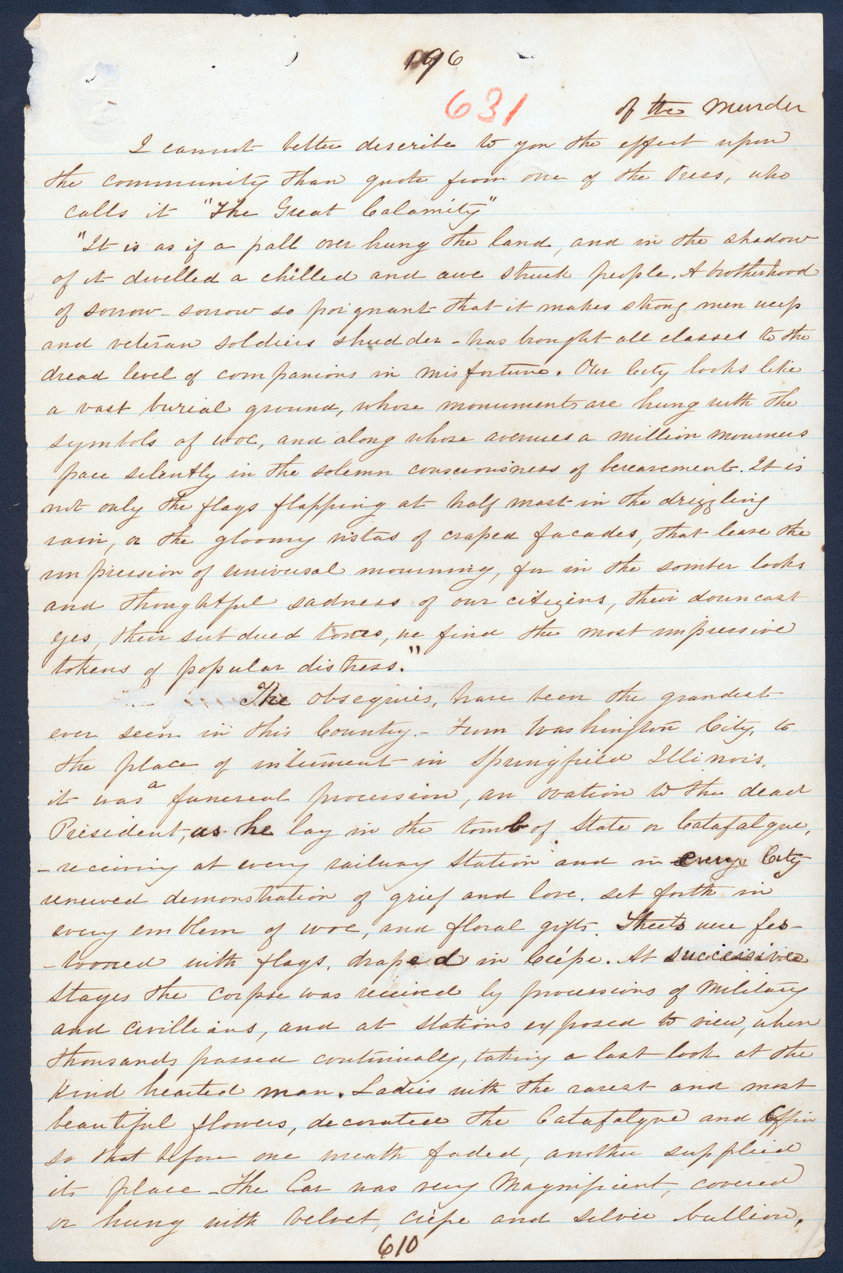 196
631
of the Murder
I cannot better describe to you the effect upon
the community than quote from one of the Press, who
calls it "The Great Calamity"
"It is as if a pall over hung the land, and in the shadow
of it dwelled a chilled and awe struck people. A brotherhood
of sorrow - sorrow so poignant that it makes strong men weep
and veteran soldiers shudder - has brought all classes to the
dread level of companions in misfortune. Our City looks like
a vast burial ground, whose monuments are hung with the
symbols of woe, and along whose avenues a million mourners
pace silently in the solemn consciousness of bereavement. It is
not only the flags flapping at half mast in the drizzling
rain, or the gloomy vistas of craped facades, that leave the
impression of universal mourning, for in the somber looks
and thoughtful sadness of our citizens, their downcast
eyes, their subdued tones, we find the most impressive
tokens of popular distress."
The obsequies, have been the grandest
ever seen in this Country. - From Washington City, to
the place of interment in Springfield Illinois,
it was a funereal procession, an ovation to the dead
President, as he lay in the tomb of State or Catafalque,
- receiving at every railway Station and in every City
renewed demonstration of grief and love. set forth in
every emblem of woe, and floral gifts. Streets were fes-
-tooned with flags. draped in Crépe. At successive
stages the corpse was received by processions of Military
and civillians, and at Stations exposed to view, when
thousands passed continually, taking a last look at the
kind hearted man. Ladies with the rarest and most
beautiful flowers, decorated the Catafalque and Coffin
so that before one wreath faded, another supplied
its place - The Car was very Magnificent, covered
or hung with Velvet, Crépe and silver bullion.
610